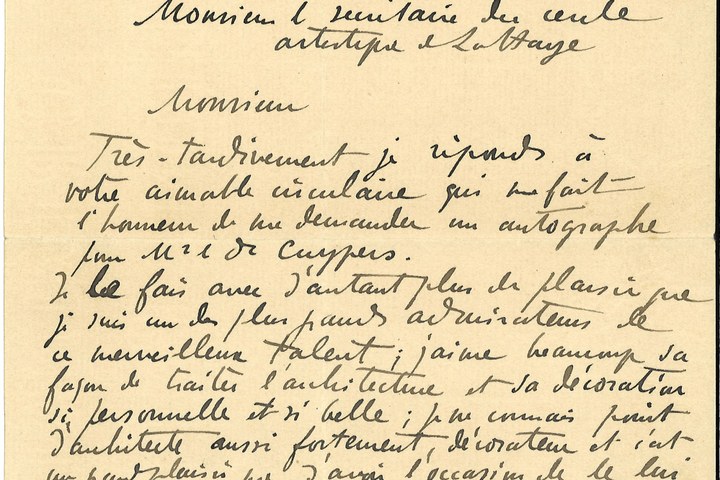 Monsieur l secrétaire du cercle
artistique de La Haye
Monsieur
Très-tardivement je réponds à
votre aimable circulaire qui me fait
l'honneur de me demander un autographe
pour Mr l Dr Cuypers.
Je le fais avec d'autant plus de plaisir que
je suis un des plus grands admirateurs de
ce merveilleux talent ; j'aime beaucoup sa
façon de traiter l'architecture et sa décoration
si personnelle et si belle ; je ne connais point
d'architecte aussi fortement décorateur et c'est
un grand plaisir que j'avoir l'occasion de le lui